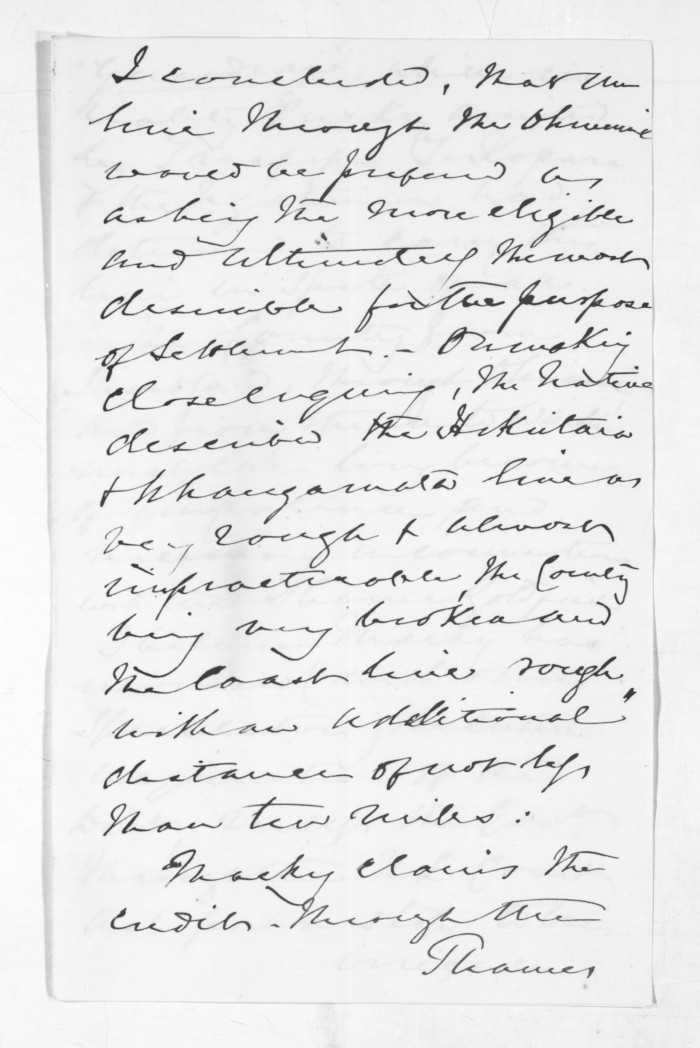 I concluded, that the
line through the Ohinemi
would be prefered as
as being the more eligible
and ultimately the most
desirable for the purpose
of Settlement. - On making
close enquiry, the Native
describe the Hikutaia
& Whangamata line as
very rough & almost
impracticable, the County
being very broken and
the Coast line rough,
with an additional
distance of not less
than ten miles:
Macky claims the
credit - through the
Thames